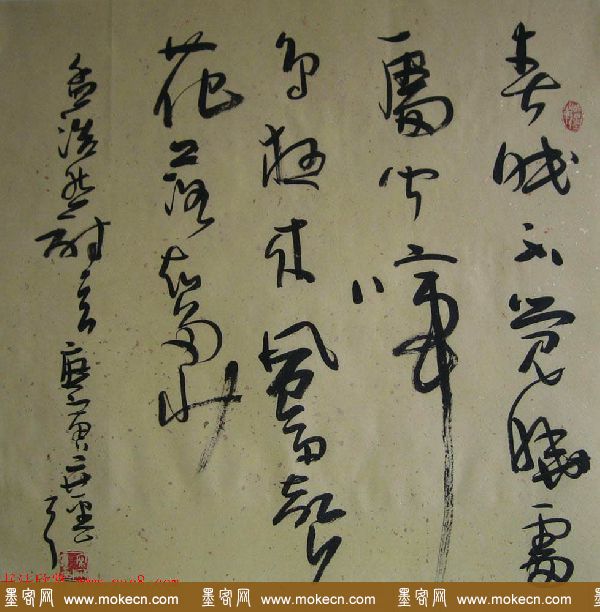 春眠不觉晓處
處闻啼
鸟夜来風雨声
花落知多少
孟浩然诗 庚寅
墨客网 www.mokecn.com 墨客网 www.mokecn.com 墨客网 www.mokecn.com